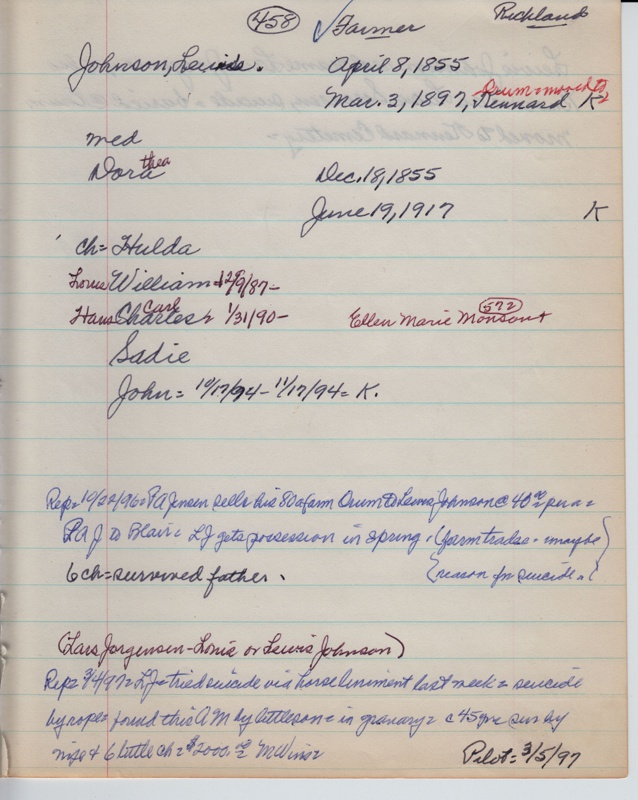 458 ✓ Farmer Richland
Johnson, Lewis. April 8, 1855
Drum = moved to
Mar. 3, 1897, Kennard K
med
Dorathea Dec. 18, 1855
June 19, 1917 K
ch = Hulda
Louie William = 12/9/87 -
Hans Charles Carl = 1/31/90 - Ellen Marie Monson + 572
Sadie
John = 10/17/94 - 11/17/94 = K.
Rep = 10/22/96 = PA Jensen sells his 80a farm Orum to Lewis Johnson @ 40.00 per a =
PAJ to Blair = LJ gets possession in spring. (farm trades - maybe
6 ch = survived father. reason for suicide.)
(Lars Jorgensen - Louie or Lewis Johnson)
Rep = 3/4/97 = LJ = tried suicide via horse liniment last week = suicide
by rope = found this AM by little son = in granary = c 45 yrs sur by
wife & 6 little ch = $2000.00
Pilot = 3/5/97